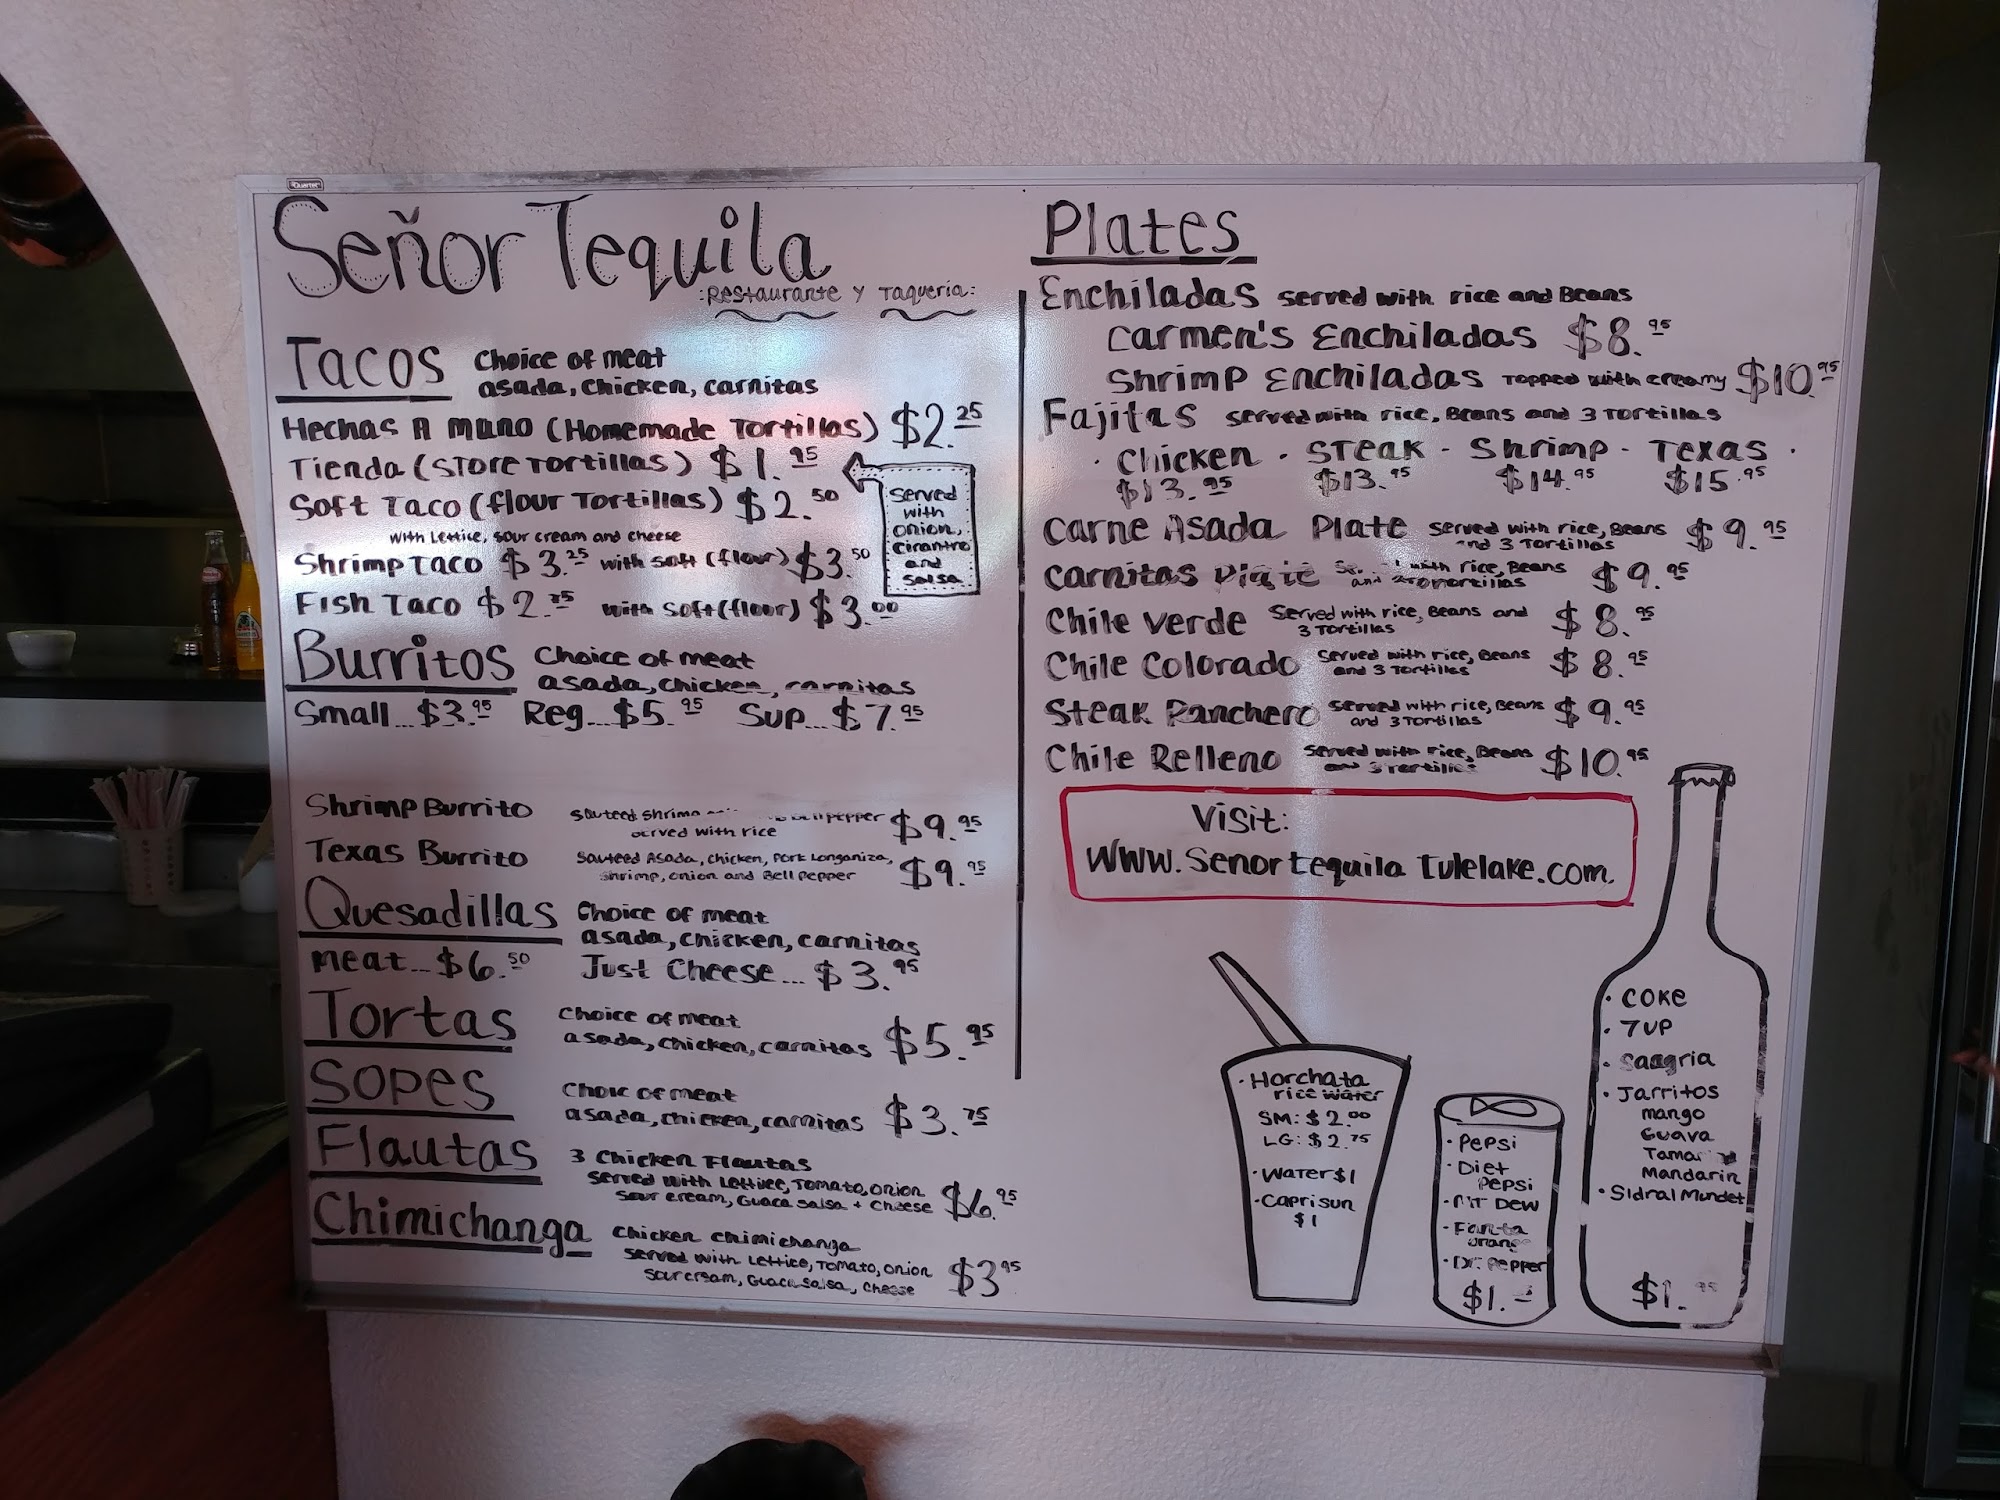 Quartet
Señor Tequila
:Restaurante y Taqueria:
Tacos Choice of meat
asada, chicken, carnitas
Hechas A mano (Homemade Tortillas) $2.25
Tienda (Store Tortillas) $1.95
Soft Taco (flour Tortillas) $2.50
with Lettice, sour cream and cheese
Shrimp Taco $3.25 with soft (flour) $3.50
Fish Taco $2.75 with soft (flour) $3.00
Served
with
onion,
cirantro
and
Salsa
Burritos Choice of meat
asada, chicken, carnitas
Small...$3.95 Reg...$5.95 Sup...$7.95
Shrimp Burrito Sauteed shrimp Bell pepper $9.95
served with rice
Texas Burrito Sauteed Asada, chicken, Pork Longaniza, $9.95
shrimp, onion and Bell pepper
Quesadillas Choice of meat
asada, chicken, carnitas
meat...$6.50 Just Cheese...$3.95
Tortas Choice of meat
asada, chicken, carnitas $5.95
Sopes Choic of meat
asada, chicken, carnitas $3.75
Flautas 3 Chicken Flautas
served with Lettice, Tomato, onion
sour cream, Guaca salsa + cheese $6.95
Chimichanga Chicken chimichanga
served with Lettice, Tomato, onion
sour cream, Guaca salsa, cheese $3.95
Plates
Enchiladas served with rice and Beans
Carmen's Enchiladas $8.95
Shrimp Enchiladas Topped with creamy $10.95
Fajitas served with rice, Beans and 3 Tortillas
· Chicken · Steak · Shrimp · Texas ·
$13.95 $13.95 $14.95 $15.95
Carne Asada Plate served with rice, Beans $9.95
and 3 Tortillas
Carnitas Plate with rice, Beans $9.95
and Tortillas
Chile Verde Served with rice, Beans and $8.95
3 Tortillas
Chile Colorado Served with rice, Beans $8.95
and 3 Tortillas
Steak Ranchero Served with rice, Beans $9.95
and 3 Tortillas
Chile Relleno Served with rice, Beans $10.95
and 3 Tortillas
Visit:
www.Senortequila Tulelake.com
· Horchata
rice water
SM: $2.00
LG: $2.75
· Water $1
· Caprisun
$1
· Pepsi
· Diet
Pepsi
· MT Dew
· Fanta
orange
· Dr. Pepper
$1.
· Coke
· 7UP
· Sangria
· Jarritos
mango
Guava
Mandarin
· Sidral Mundet
$1.95